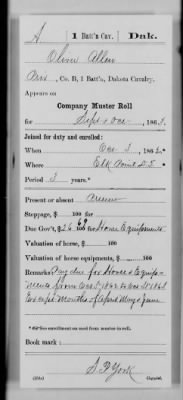 A | 1 Batt'y Cav. | Dak.
Oliver Allen
Pvt, Co. B, 1 Batt'y, Dakota Cavalry.
Appears on
Company Muster Roll
for Sept & Oct, 1863.
Joined for duty and enrolled:
When Dec 3, 1862.*
Where Elk Point D.T.
Period 3 years.*
Present or absent Present
Stoppage, $ 100 for
Due Gov't, $26 68/100 for Horse Equipments
Valuation of horse, $ 100
Valuation of horse equipments, $ 100
Remarks: Pay due for Horse & Equip-
ments from
Except Months of May & June
* See enrollment on card from muster-in roll.
Book mark:
S. P. York
Copyist.